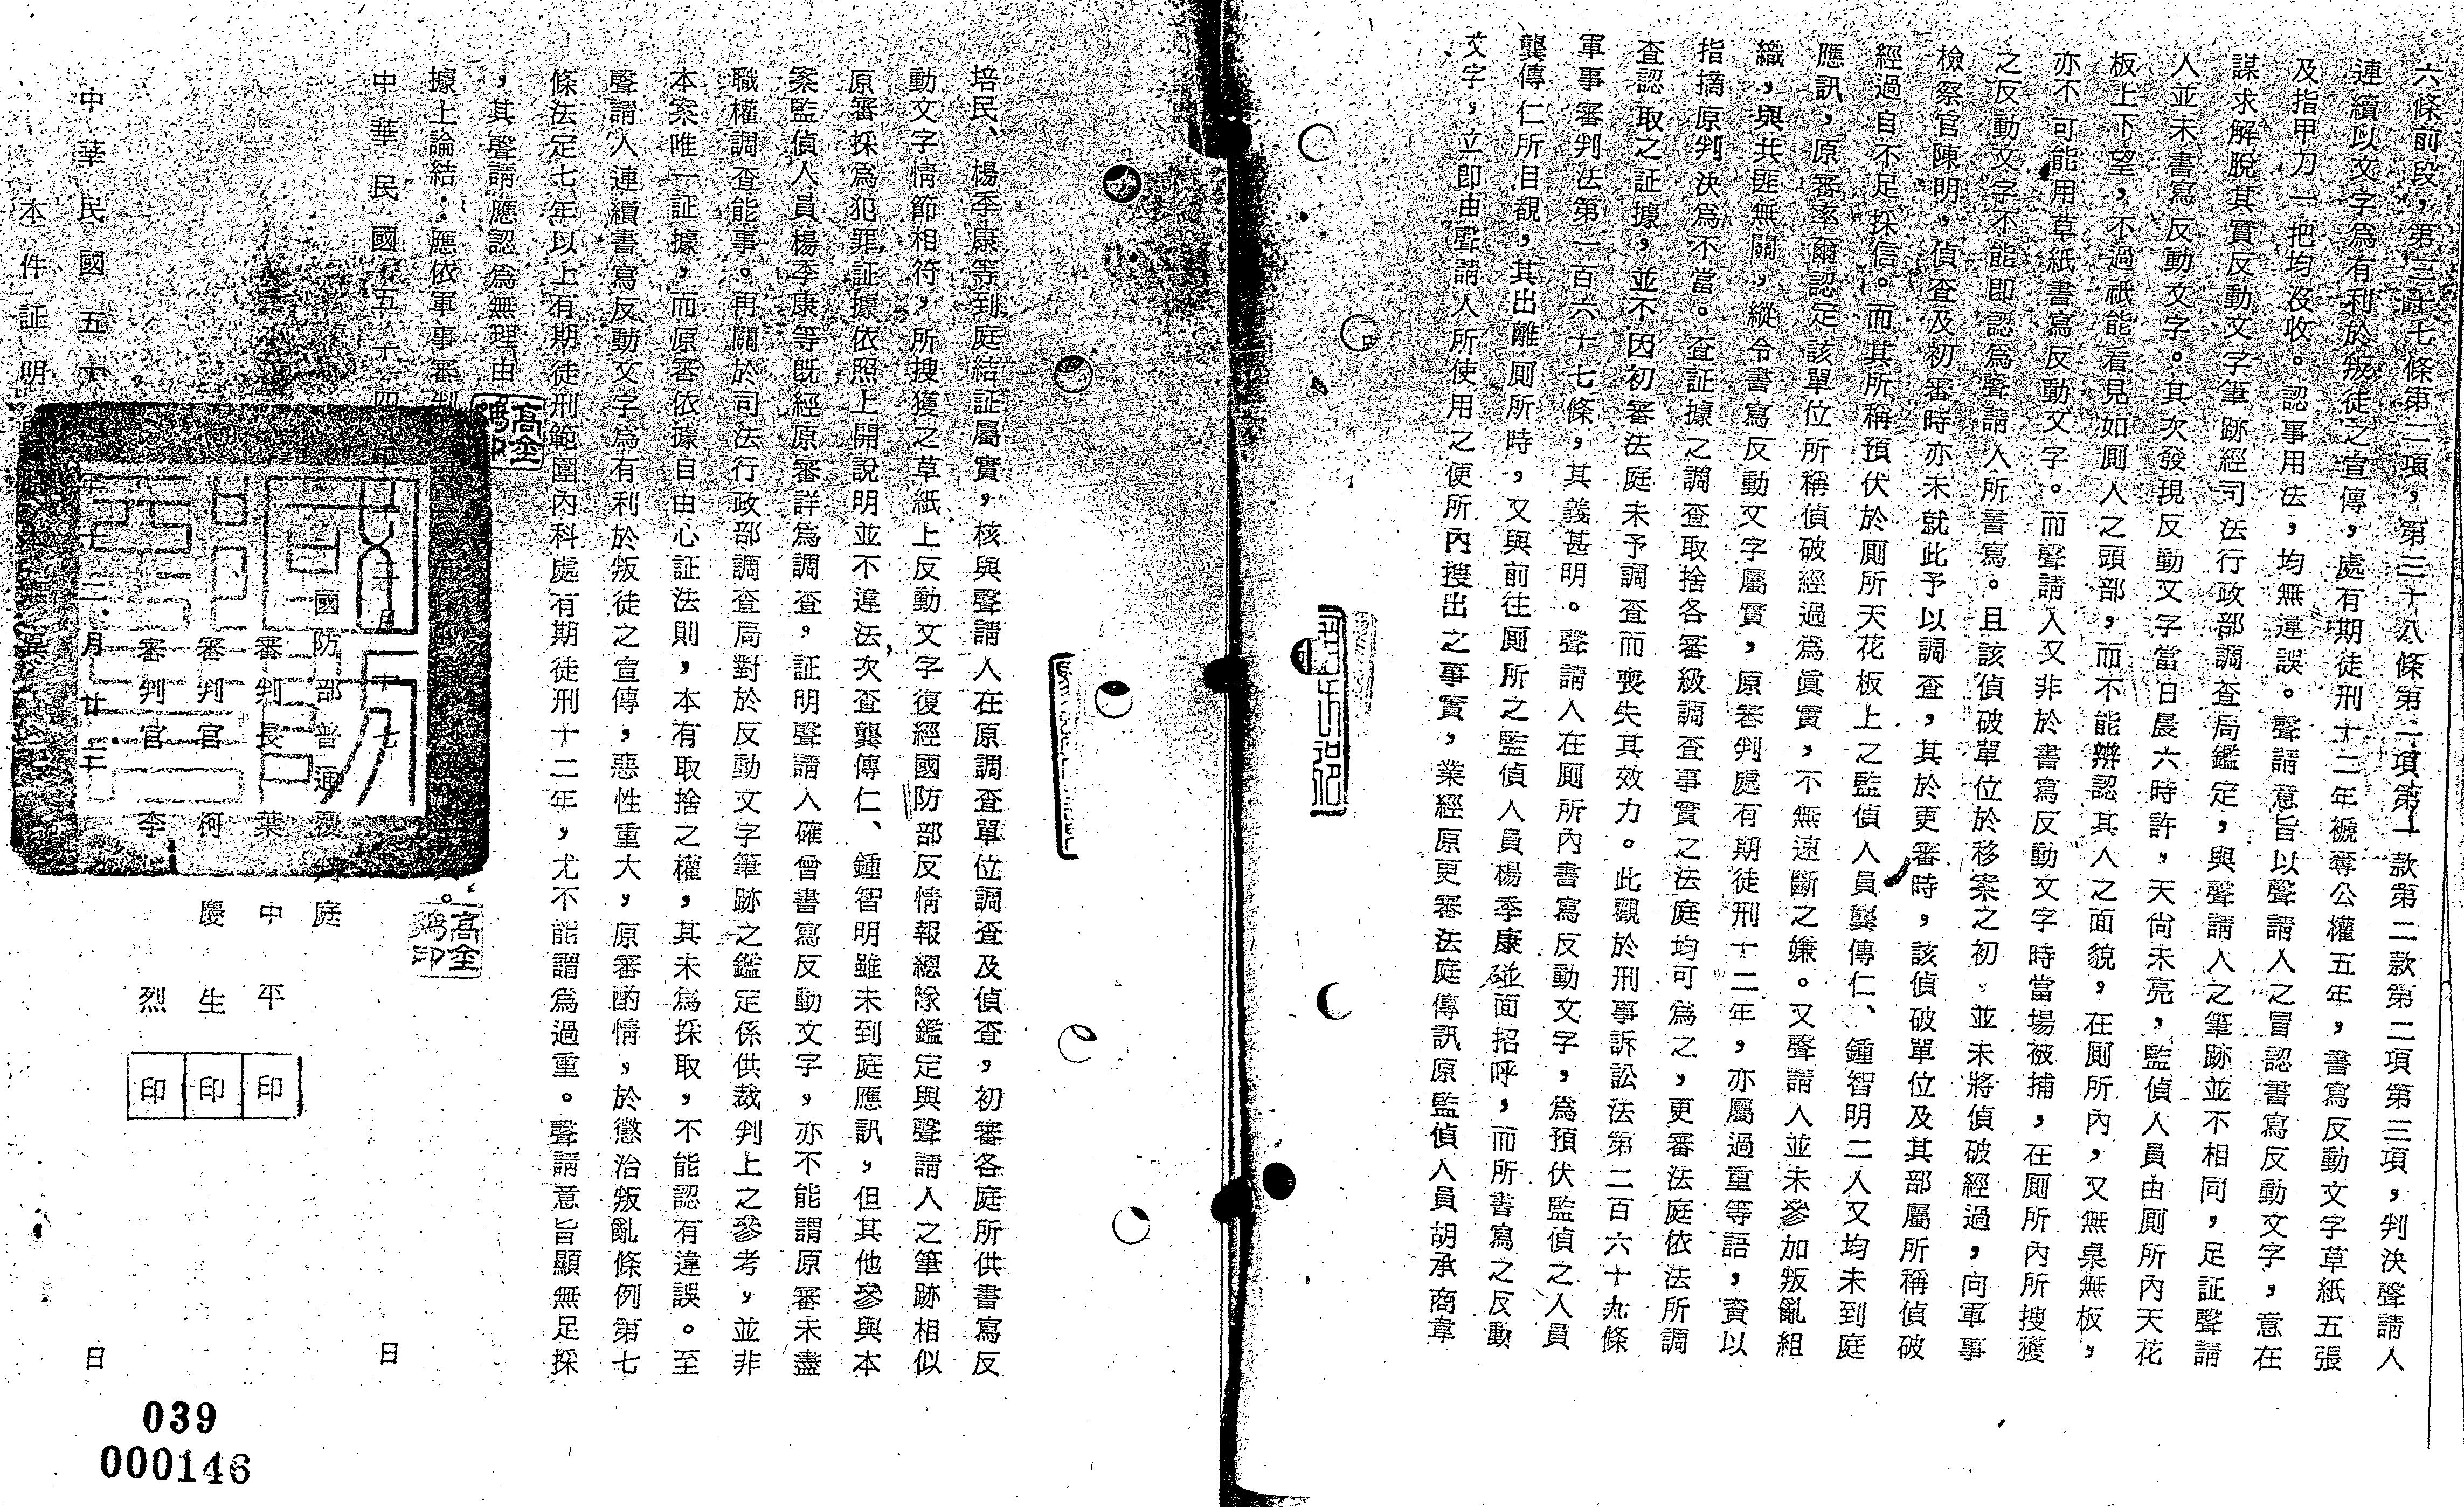 六條前段，第三十七條第二項，第三十八條第二項第一款第二款第二項第三項，判決聲請人
連續以文字為有利於叛徒之宣傳，處有期徒刑十二年褫奪公權五年，書寫反動文字草紙五張
及指甲刀一把均沒收。認事用法，均無違誤。聲請意旨以聲請人之冒認書寫反動文字，意在
謀求解脫其實反動文字筆跡經司法行政部調查局鑑定，與聲請人之筆跡並不相同，足証聲請
人並未書寫反動文字。其次發現反動文字當日晨六時許，天尚未亮，監偵人員由厠所內天花
板上下望，不過祇能看見如厠人之頭部，而不能辯認其人之面貌，在厠所內，又無桌無板，
亦不可能用草紙書寫反動文字。而聲請人又非於書寫反動文字時當場被捕，在厠所內所搜獲
之反動文字不能即認為聲請人所書寫。且該偵破單位於移案之初，並未將偵破經過，向軍事
檢察官陳明，偵查及初審時亦未就此予以調查，其於更審時，該偵破單位及其部屬所稱偵破
經過自不足採信。而其所稱預伏於厠所天花板上之監偵人員龔傳仁、鍾智明二人又均未到庭
應訊，原審率爾認定該單位所稱偵破經過為眞實，不無速斷之嫌。又聲請人並未參加叛亂組
織，與共匪無關，縱令書寫反動文字屬實，原審判處有期徒刑十二年，亦屬過重等語，資以
指摘原判決為不當。查証據之調查取捨各審級調查事實之法庭均可為之，更審法庭依法所調
查認取之証據，並不因初審法庭未予調查而喪失其效力。此觀於刑事訴訟法第二百六十九條
軍事審判法第一百六十七條，其義甚明。聲請人在厠所內書寫反動文字，為預伏監偵之人員
龔傳仁所目覩，其出離厠所時，又與前往厠所之監偵人員楊季康碰面招呼，而所書寫之反動
文字，立即由聲請人所使用之便所內搜出之事實，業經原更審法庭傳訊原監偵人員胡承商韋
培民、楊季康等到庭結証屬實，核與聲請人在原調查單位調查及偵查，初審各庭所供書寫反
動文字情節相符，所搜獲之草紙上反動文字復經國防部反情報總隊鑑定與聲請人之筆跡相似
原審採為犯罪証據依照上開說明並不違法次查龔傳仁、鍾智明雖未到庭應訊，但其他參與本
案監偵人員楊季康等既經原審詳為調查，証明聲請人確曾書寫反動文字，亦不能謂原審未盡
職權調查能事。再關於司法行政部調查局對於反動文字筆跡之鑑定係供裁判上之參考，並非
本案唯一証據，而原審依據自由心証法則，本有取捨之權，其未為採取，不能認有違誤。至
聲請人連續書寫反動文字為有利於叛徒之宣傳，惡性重大，原審酌情，於懲治叛亂條例第七
條法定七年以上有期徒刑範圍內科處有期徒刑十二年，尤不能謂為過重。聲請意旨顯無足採
，其聲請應認為無理由
據上論結：應依軍事審判
中華民國五十四年十月十七日
國防部普通覆判庭
審判長葉中平印
審判官柯慶生印
審判官李烈印
中華民國五十年十二月廿三日
本件証明
高金鴻印
高金鴻印
039
000146